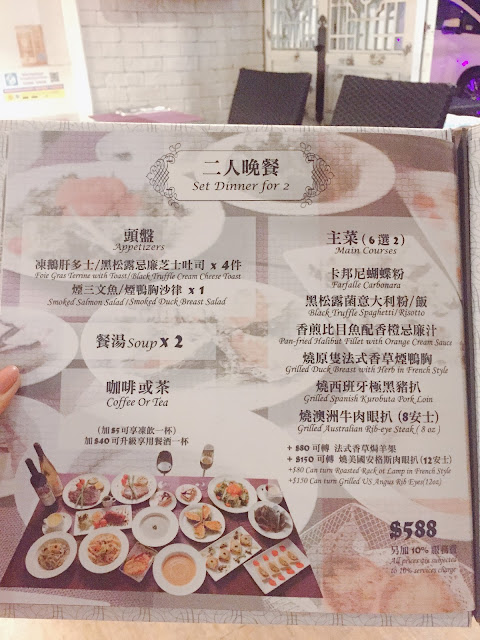 二人晚餐
Set Dinner for 2
頭盤
Appetizers
凍鵝肝多士/黑松露忌廉芝士吐司 x 4件
Foie Gras Terrine with Toast/Black Truffle Cream Cheese Toast
煙三文魚/煙鴨胸沙律 x 1
Smoked Salmon Salad /Smoked Duck Breast Salad
餐湯 Soup x 2
咖啡或茶
Coffee Or Tea
(加 $5可享凍飲一杯)
加 $40可升級享用餐酒一杯
主菜 (6 選 2)
Main Courses
卡邦尼蝴蝶粉
Farfalle Carbonara
黑松露菌意大利粉/飯
Black Truffle Spaghetti/ Risotto
香煎比目魚配香橙忌廉汁
Pan-fried Halibut Fillet with Orange Cream Sauce
燒原隻法式香草煙鴨胸
Grilled Duck Breast with Herb in French Style
燒西班牙極黑豬扒
Grilled Spanish Kurobuta Pork Loin
燒澳洲牛肉眼扒 (8安士)
Grilled Australian Rib-eye Steak ( 8 oz )
+ $80可轉 法式香草焗羊架
+ $150可轉 燒美國安格斯肉眼扒(12安士)
+$80 Can turn Roasted Rack of Lamp in French Style
+$150 Can turn Grilled US Angus Rib Eyes(12oz)
$588
另加 10% 服務費
All prices are subjected
to 10% services charge